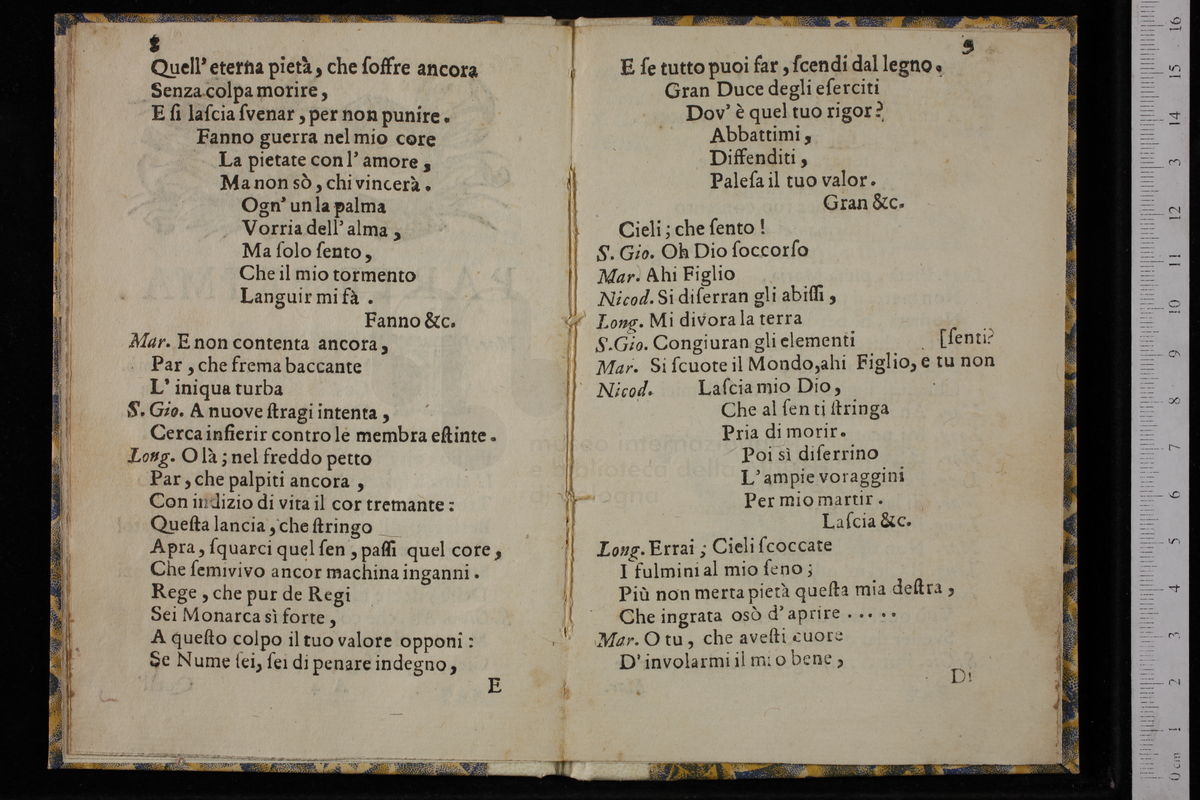 8
Quell' eterna pietà, che ſoffre ancora
Senza colpa morire,
E ſi laſcia ſvenar, per non punire.
Fanno guerra nel mio core
La pietate con l' amore,
Ma non sò, chi vincerà.
Ogn' un la palma
Vorria dell' alma,
Ma ſolo ſento,
Che il mio tormento
Languir mi fà.
Fanno &c.
Mar. E non contenta ancora,
Par, che frema baccante
L' iniqua turba
S. Gio. A nuove ſtragi intenta,
Cerca infierir contro le membra eſtinte.
Long. O là; nel freddo petto
Par, che palpiti ancora,
Con indizio di vita il cor tremante:
Queſta lancia, che ſtringo
Apra, ſquarci quel ſen, paſſi quel core,
Che ſemivivo ancor machina inganni.
Rege, che pur de Regi
Sei Monarca sì forte,
A queſto colpo il tuo valore opponi:
Se Nume ſei, ſei di penare indegno,
E
9
E ſe tutto puoi far, ſcendi dal legno.
Gran Duce degli eſerciti
Dov' è quel tuo rigor?
Abbattimi,
Diffenditi,
Paleſa il tuo valor.
Gran &c.
Cieli; che ſento!
S. Gio. Oh Dio ſoccorſo
Mar. Ahi Figlio
Nicod. Si diſerran gli abiſſi,
Long. Mi divora la terra
S. Gio. Congiuran gli elementi [ſenti?
Mar. Si ſcuote il Mondo, ahi Figlio, e tu non
Nicod. Laſcia mio Dio,
Che al ſen ti ſtringa
Pria di morir.
Poi sì diſerrino
L' ampie voraggini
Per mio martir.
Laſcia &c.
Long. Errai; Cieli ſcoccate
I fulmini al mio ſeno;
Più non merta pietà queſta mia deſtra,
Che ingrata osò d' aprire .....
Mar. O tu, che aveſti cuore
D' involarmi il mio bene,
Di